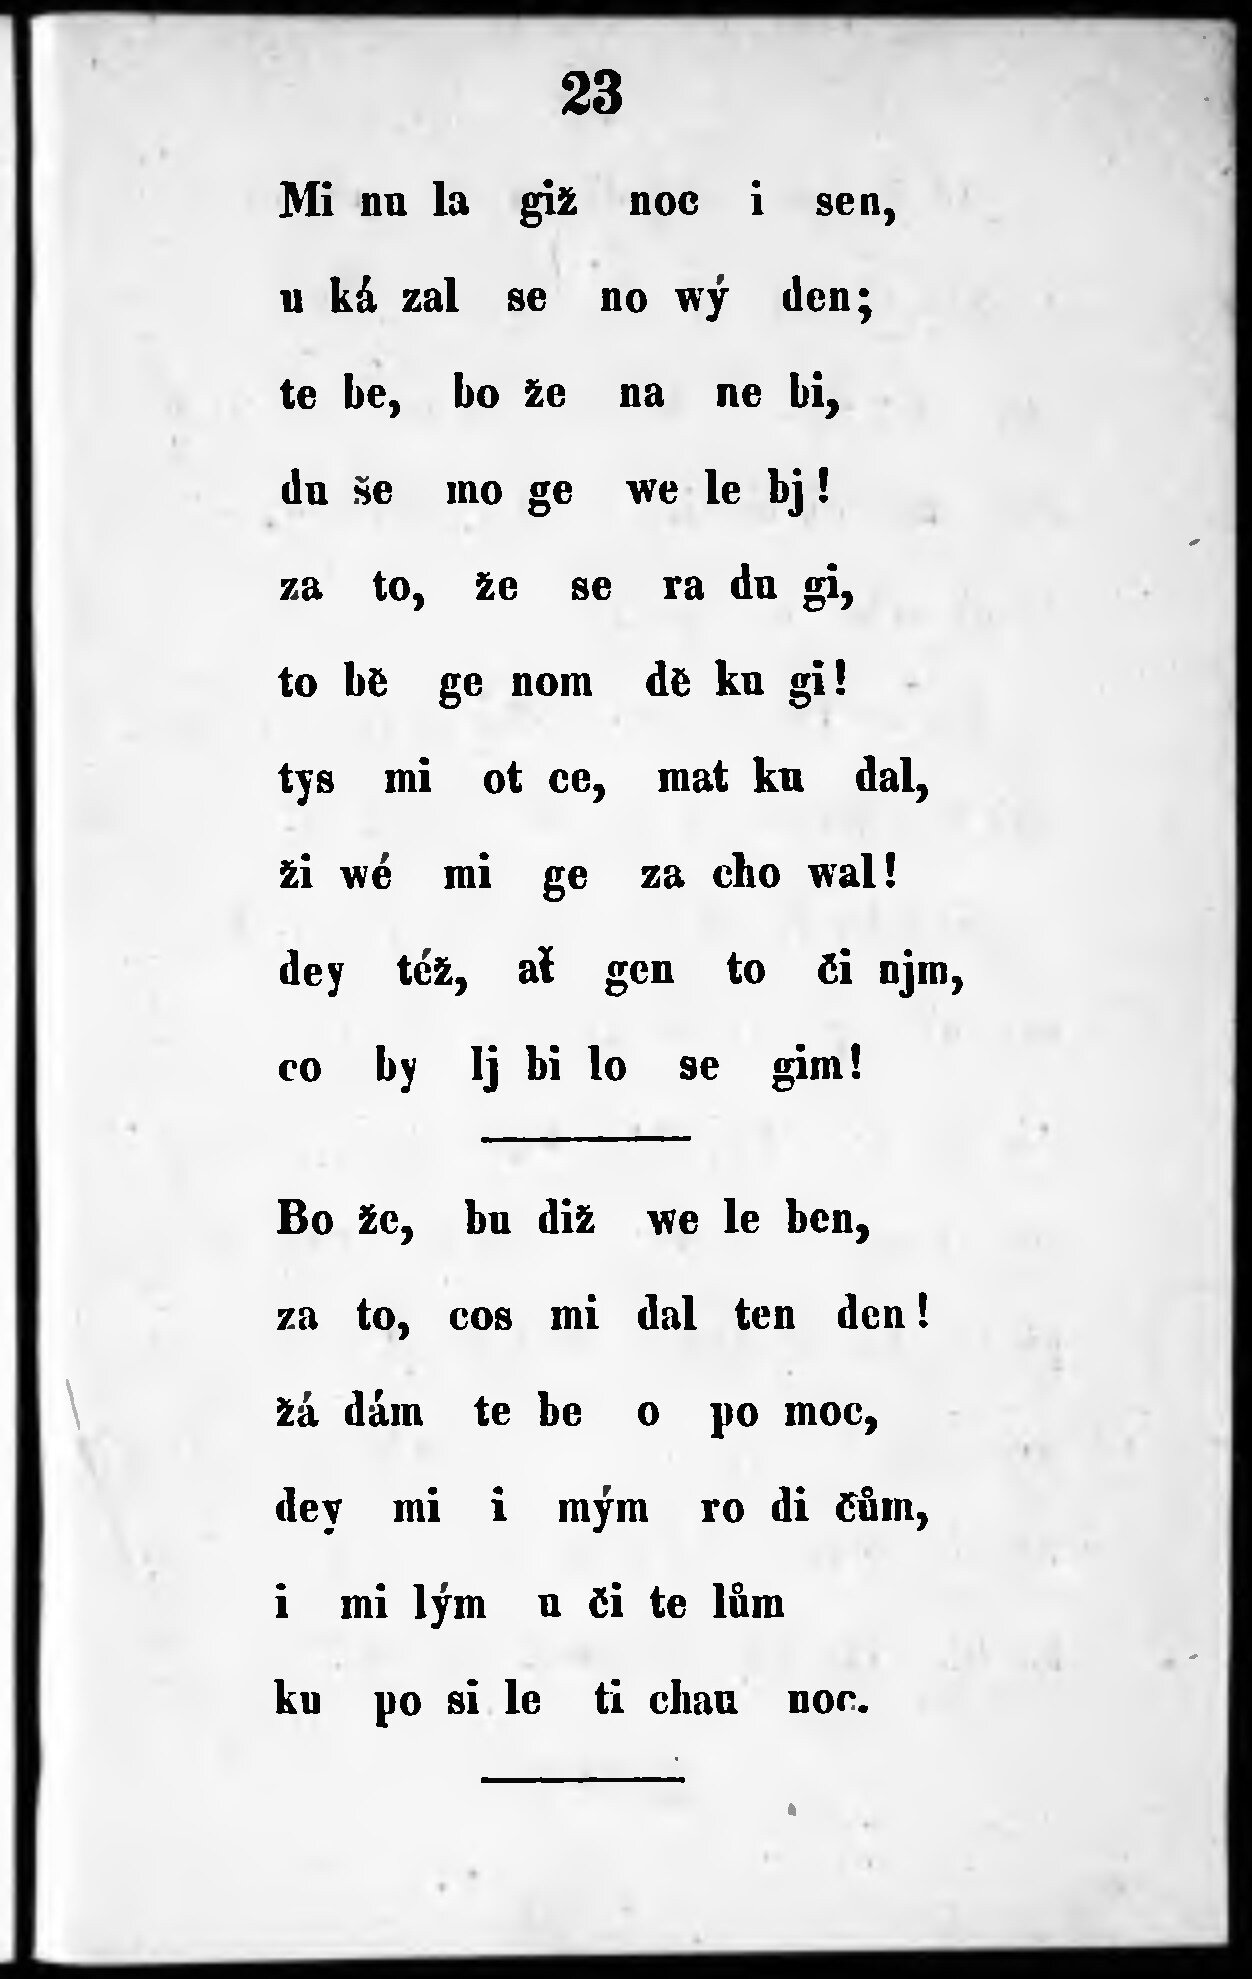 23
Mi nu la giž noc i sen,
u ká zal se no wý den;
te be, bo že na ne bi,
du še mo ge we le bj!
za to, že se ra du gi,
to bě ge nom dě ku gi!
tys mi ot ce, mat ku dal,
ži wé mi ge za cho wal!
dey též, ať gen to či njm,
co by lj bi lo se gim!
Bo že, bu diž we le ben,
za to, cos mi dal ten den!
žá dám te be o po moc,
dey mi i mým ro di čům,
i mi lým u či te lům
ku po si le ti chau noc.